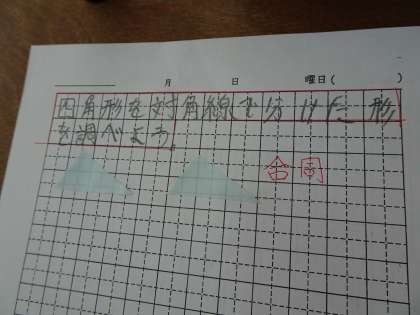 月 日 曜日( )
四角形を対角線で分けた形
を調べよう。
合同